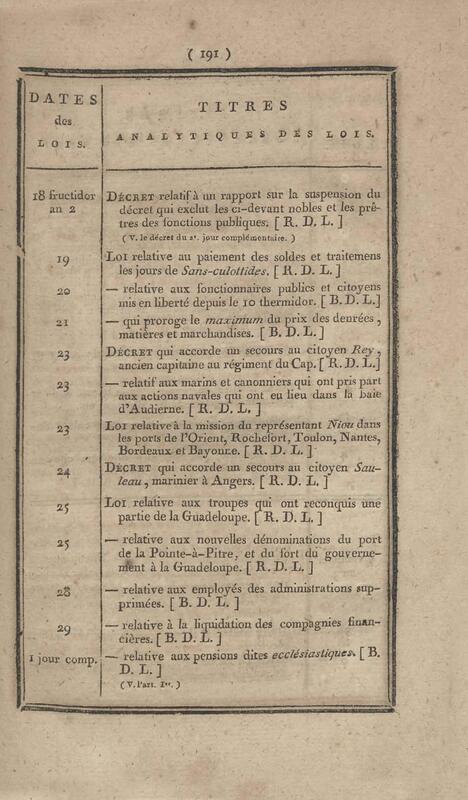 ( 191 )
DATES
des
LOIS.
TITRES
ANALYTIQUES DES LOIS.
18 fructidor
an 2
DÉCRET relatif à un rapport sur la suspension du
décret qui exclut les ci-devant nobles et les prê-
tres des fonctions publiques. [ R. D. L. ]
( V. le décret du 2e. jour complémentaire. )
19
LOI relative au paiement des soldes et traitemens
les jours de Sans-culottides. [ R. D. L. ]
20
— relative aux fonctionnaires publics et citoyens
mis en liberté depuis le 10 thermidor. [ B. D. L. ]
21
— qui proroge le maximum du prix des denrées,
matières et marchandises. [ B. D. L. ]
23
DÉCRET qui accorde un secours au citoyen Rey,
ancien capitaine au régiment du Cap. [ R. D. L. ]
23
— relatif aux marins et canonniers qui ont pris part
aux actions navales qui ont eu lieu dans la baie
d'Audierne. [ R. D. L. ]
23
LOI relative à la mission du représentant Niou dans
les ports de l'Orient, Rochefort, Toulon, Nantes,
Bordeaux et Bayonne. [ R. D. L. ]
24
DÉCRET qui accorde un secours au citoyen Sau-
leau, marinier à Angers. [ R. D. L. ]
25
LOI relative aux troupes qui ont reconquis une
partie de la Guadeloupe. [ R. D. L. ]
25
— relative aux nouvelles dénominations du port
de la Pointe-à-Pitre, et du fort du gouverne-
ment à la Guadeloupe. [ R. D. L. ]
28
— relative aux employés des administrations sup-
primées. [ B. D. L. ]
29
— relative à la liquidation des compagnies finan-
cières. [ B. D. L. ]
1 jour comp.
— relative aux pensions dites ecclésiastiques. [ B.
D. L. ]
( V. l'art. 1er. )